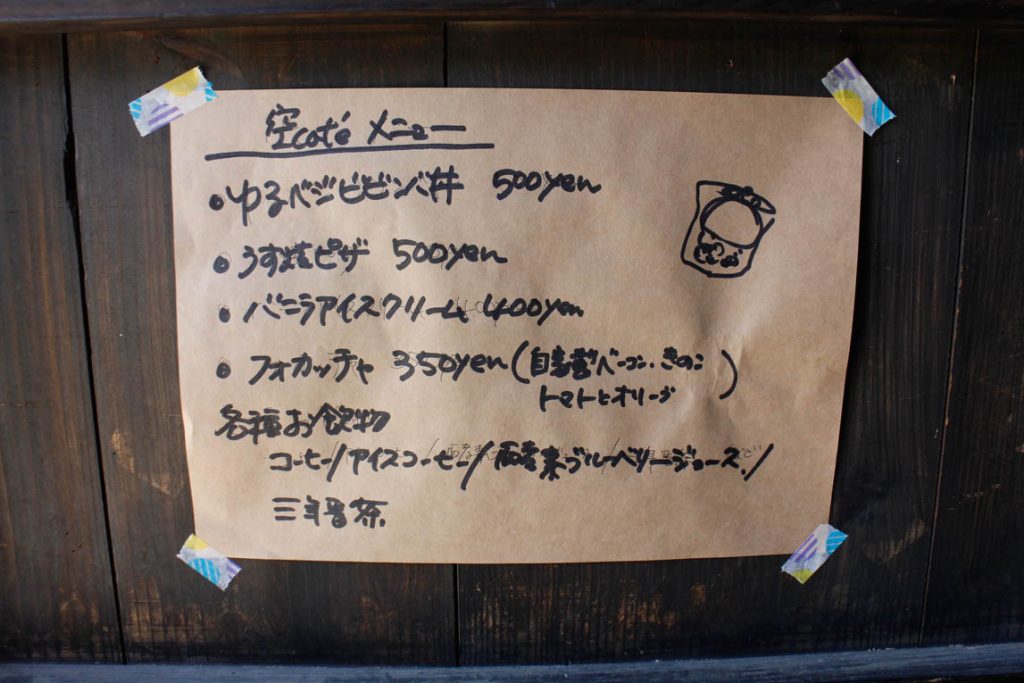 空café メニュー
・ゆるベジビビンバ丼 500yen
・うす焼ピザ 500yen
・バニラアイスクリーム 400yen
・フォカッチャ 350yen(自家製ベーコン・きのこ
トマトとオリーブ)
各種お飲物
コーヒー/アイスコーヒー/酵素ブルーベリージュース/
三年番茶